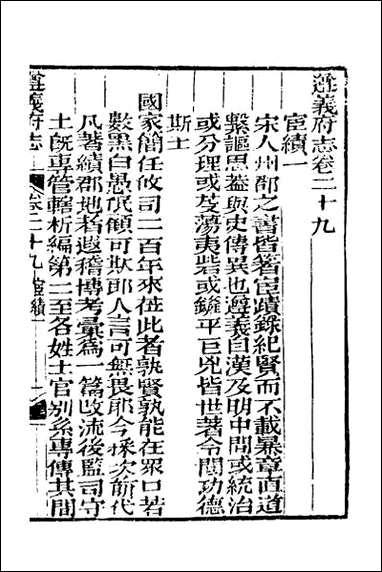 遵義府志卷二十九
宦績一
宋人州郡之書皆著宦蹟錄紀賢而不載暴章直道
繫謳思葢與史傳異也遵義自漢及明中間或統治
或分理或芟蕩夷砦或鏟平巨兇皆世著令聞功德
斯土
國家簡任攸司二百年來莅此者孰賢孰能在眾口若
數黑白愚氓頗可欺耶人言可無畏耶今採次前代
凡著績郡地者遐稽博考彙為一篇改流後監司守
土旣專管轄析編第二至各姓土官別系專傳其間
遵義府志
卷二十九
宦績一
一